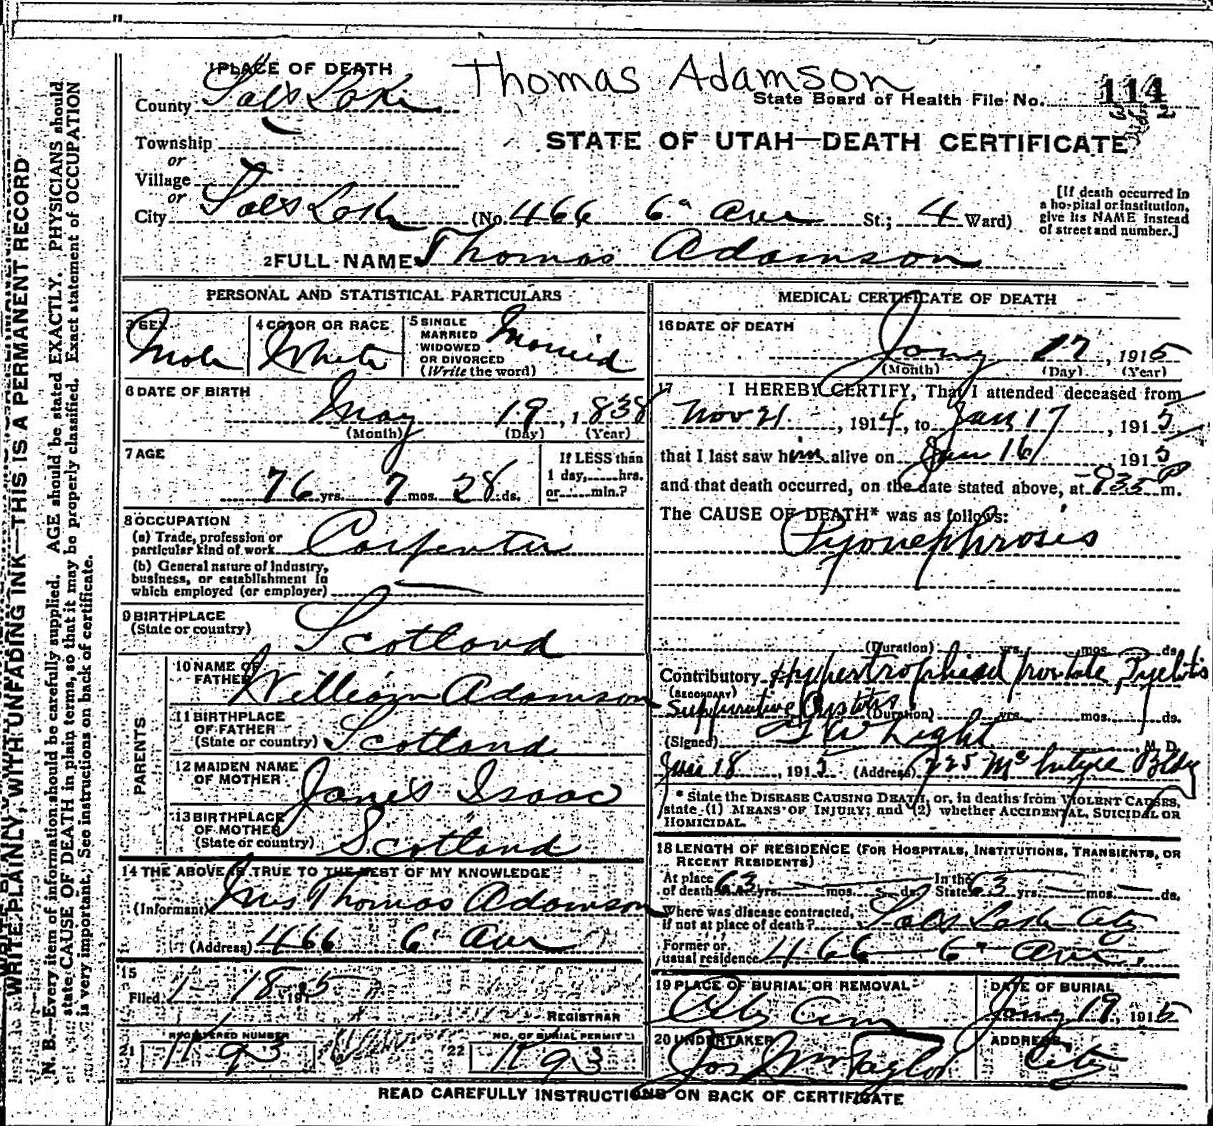 Thomas Adamson
1 PLACE OF DEATH
County Salt Lake
State Board of Health File No. 114
Township
or
STATE OF UTAH—DEATH CERTIFICATE
Village
or
City Salt Lake (No. 466 6" Ave St.; 4 Ward)
[If death occurred in
a hospital or institution,
give its NAME instead
of street and number.]
2 FULL NAME Thomas Adamson
PERSONAL AND STATISTICAL PARTICULARS
3 SEX Male
4 COLOR OR RACE White
5 SINGLE
MARRIED
WIDOWED
OR DIVORCED
(Write the word) Married
6 DATE OF BIRTH
May 19, 1838
(Month) (Day) (Year)
7 AGE
76 yrs. 7 mos. 28 ds.
If LESS than
1 day,.....hrs.
or.....min.?
8 OCCUPATION
(a) Trade, profession or
particular kind of work Carpenter
(b) General nature of industry,
business, or establishment in
which employed (or employer)
9 BIRTHPLACE
(State or country) Scotland
PARENTS
10 NAME OF
FATHER William Adamson
11 BIRTHPLACE
OF FATHER
(State or country) Scotland
12 MAIDEN NAME
OF MOTHER Isaac
13 BIRTHPLACE
OF MOTHER
(State or country) Scotland
14 THE ABOVE IS TRUE TO THE BEST OF MY KNOWLEDGE
(Informant) Mrs Thomas Adamson
(Address) 466 6" Ave
15
Filed 1-18 1915
REGISTRAR
21 REGISTERED NUMBER 1193
22 NO. OF BURIAL PERMIT 1193
MEDICAL CERTIFICATE OF DEATH
16 DATE OF DEATH
Jany 17, 1915
(Month) (Day) (Year)
17 I HEREBY CERTIFY, That I attended deceased from
Nov 21, 1914, to Jan 17 1915
that I last saw him alive on Jan 16 1915
and that death occurred, on the date stated above, at 935 P m.
The CAUSE OF DEATH* was as follows:
Pyonephrosis
(Duration) yrs. mos. ds.
Contributory Hypertrophied Prostate, Pyelitis
(SECONDARY)
Suppurative Cystitis
(Duration) yrs. mos. ds.
(Signed) Light M. D.
Jan 18, 1915 (Address) 725 McIntyre Bldg
* State the DISEASE CAUSING DEATH, or, in deaths from VIOLENT CAUSES,
state (1) MEANS OF INJURY; and (2) whether ACCIDENTAL, SUICIDAL OR
HOMICIDAL.
18 LENGTH OF RESIDENCE (FOR HOSPITALS, INSTITUTIONS, TRANSIENTS, OR
RECENT RESIDENTS)
At place
of death 63 yrs. mos. ds. In the
State 63 yrs. mos. ds.
Where was disease contracted,
if not at place of death? Salt Lake City
Former or
usual residence 466 6" Ave.
19 PLACE OF BURIAL OR REMOVAL
City Cem
DATE OF BURIAL
Jany 19, 1915
20 UNDERTAKER
Jos Wm Taylor
ADDRESS
City
READ CAREFULLY INSTRUCTIONS ON BACK OF CERTIFICATE
WRITE PLAINLY, WITH UNFADING INK—THIS IS A PERMANENT RECORD
N. B.—Every item of information should be carefully supplied. AGE should be stated EXACTLY. PHYSICIANS should
state CAUSE OF DEATH in plain terms, so that it may be properly classified. Exact statement of OCCUPATION
is very important. See instructions on back of certificate.